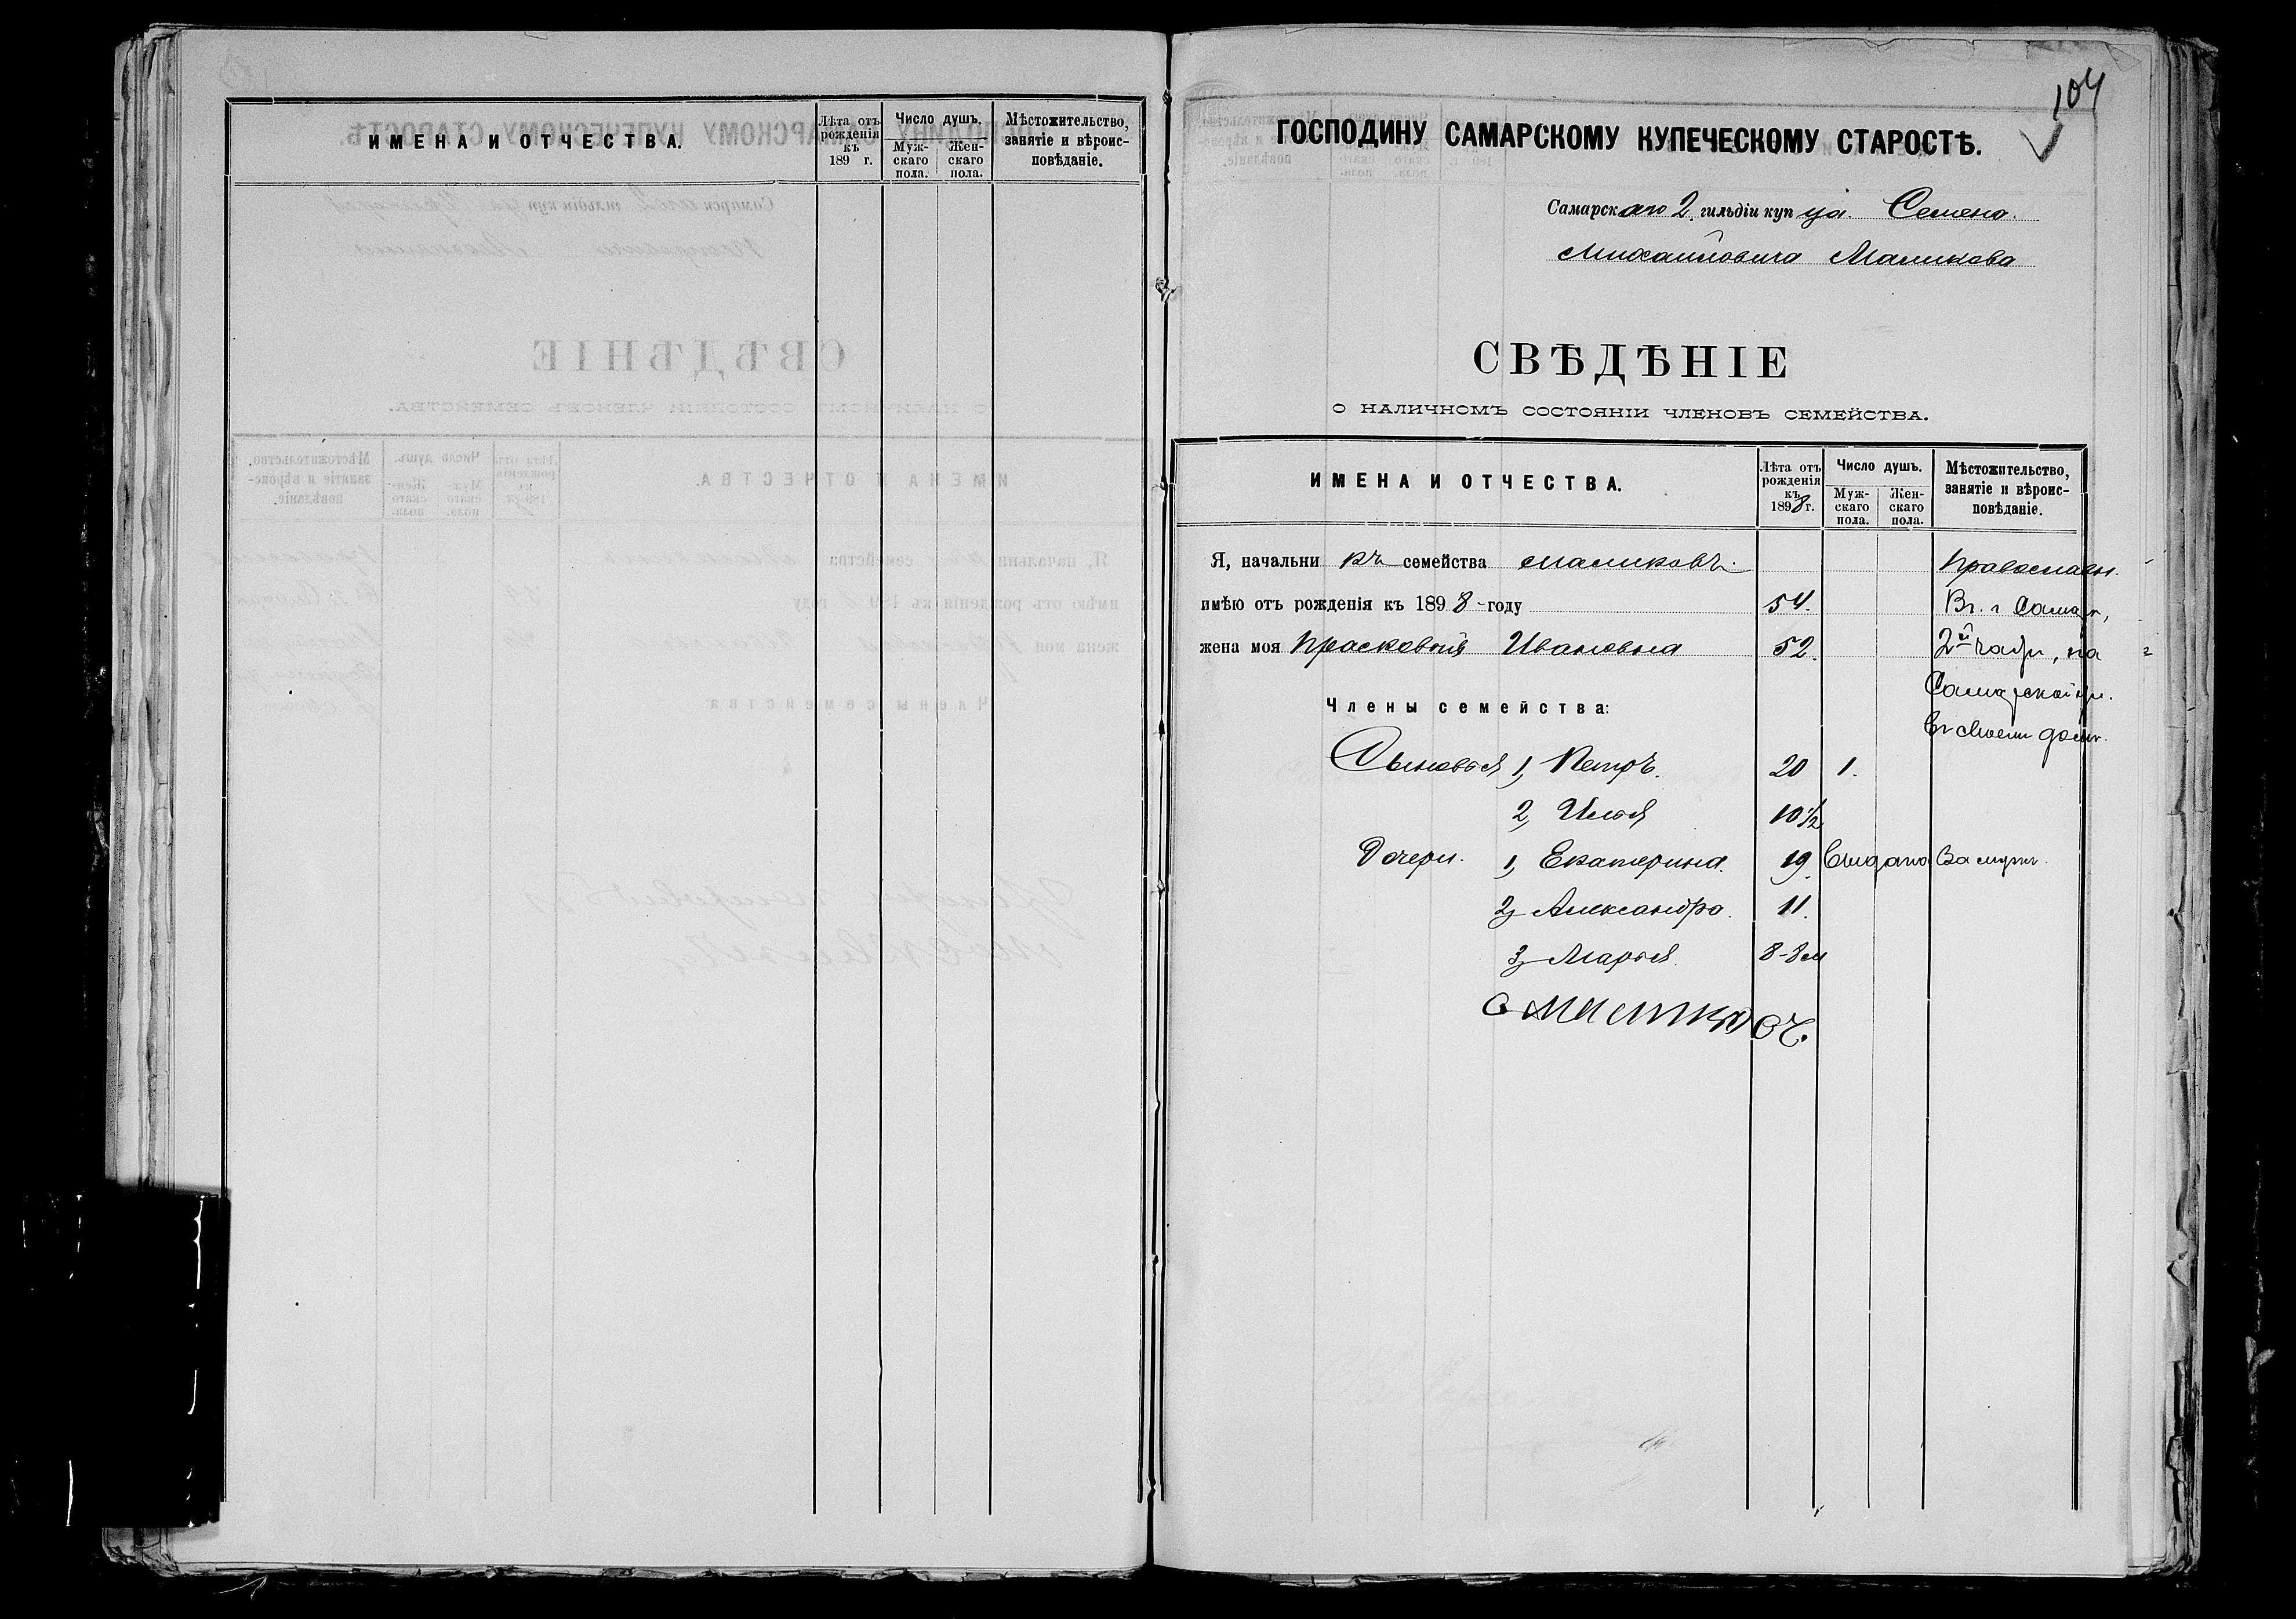 ИМЕНА И ОТЧЕСТВА.
Лѣта отъ рожденія къ 189 г.
Число душъ.
Мужскаго пола.
Женскаго пола.
Мѣстожительство, занятіе и вѣроисповѣданіе.
104
ГОСПОДИНУ САМАРСКОМУ КУПЕЧЕСКОМУ СТАРОСТѢ.
Самарскаго 2 гильдіи купца Семена
Михайловича Маликова
СВѢДѢНІЕ
О НАЛИЧНОМЪ СОСТОЯНІИ ЧЛЕНОВЪ СЕМЕЙСТВА.
ИМЕНА И ОТЧЕСТВА.
Лѣта отъ рожденія къ 1898 г.
Число душъ.
Мужскаго пола.
Женскаго пола.
Мѣстожительство, занятіе и вѣроисповѣданіе.
Я, начальникъ семейства Маликовъ Православн.
имѣю отъ рожденія къ 1898 году 54. Въ г Самар,
жена моя Прасковья Ивановна 52. 2й части, на
Самарской ул.
Члены семейства:
въ своемъ домѣ.
Сыновья 1, Петръ. 20 1.
2, Илья 10 1/2
Дочери. 1, Екатерина. 19 выдана замужъ.
2, Александра. 11.
3, Марья. 8-8 м
С Маликовъ.